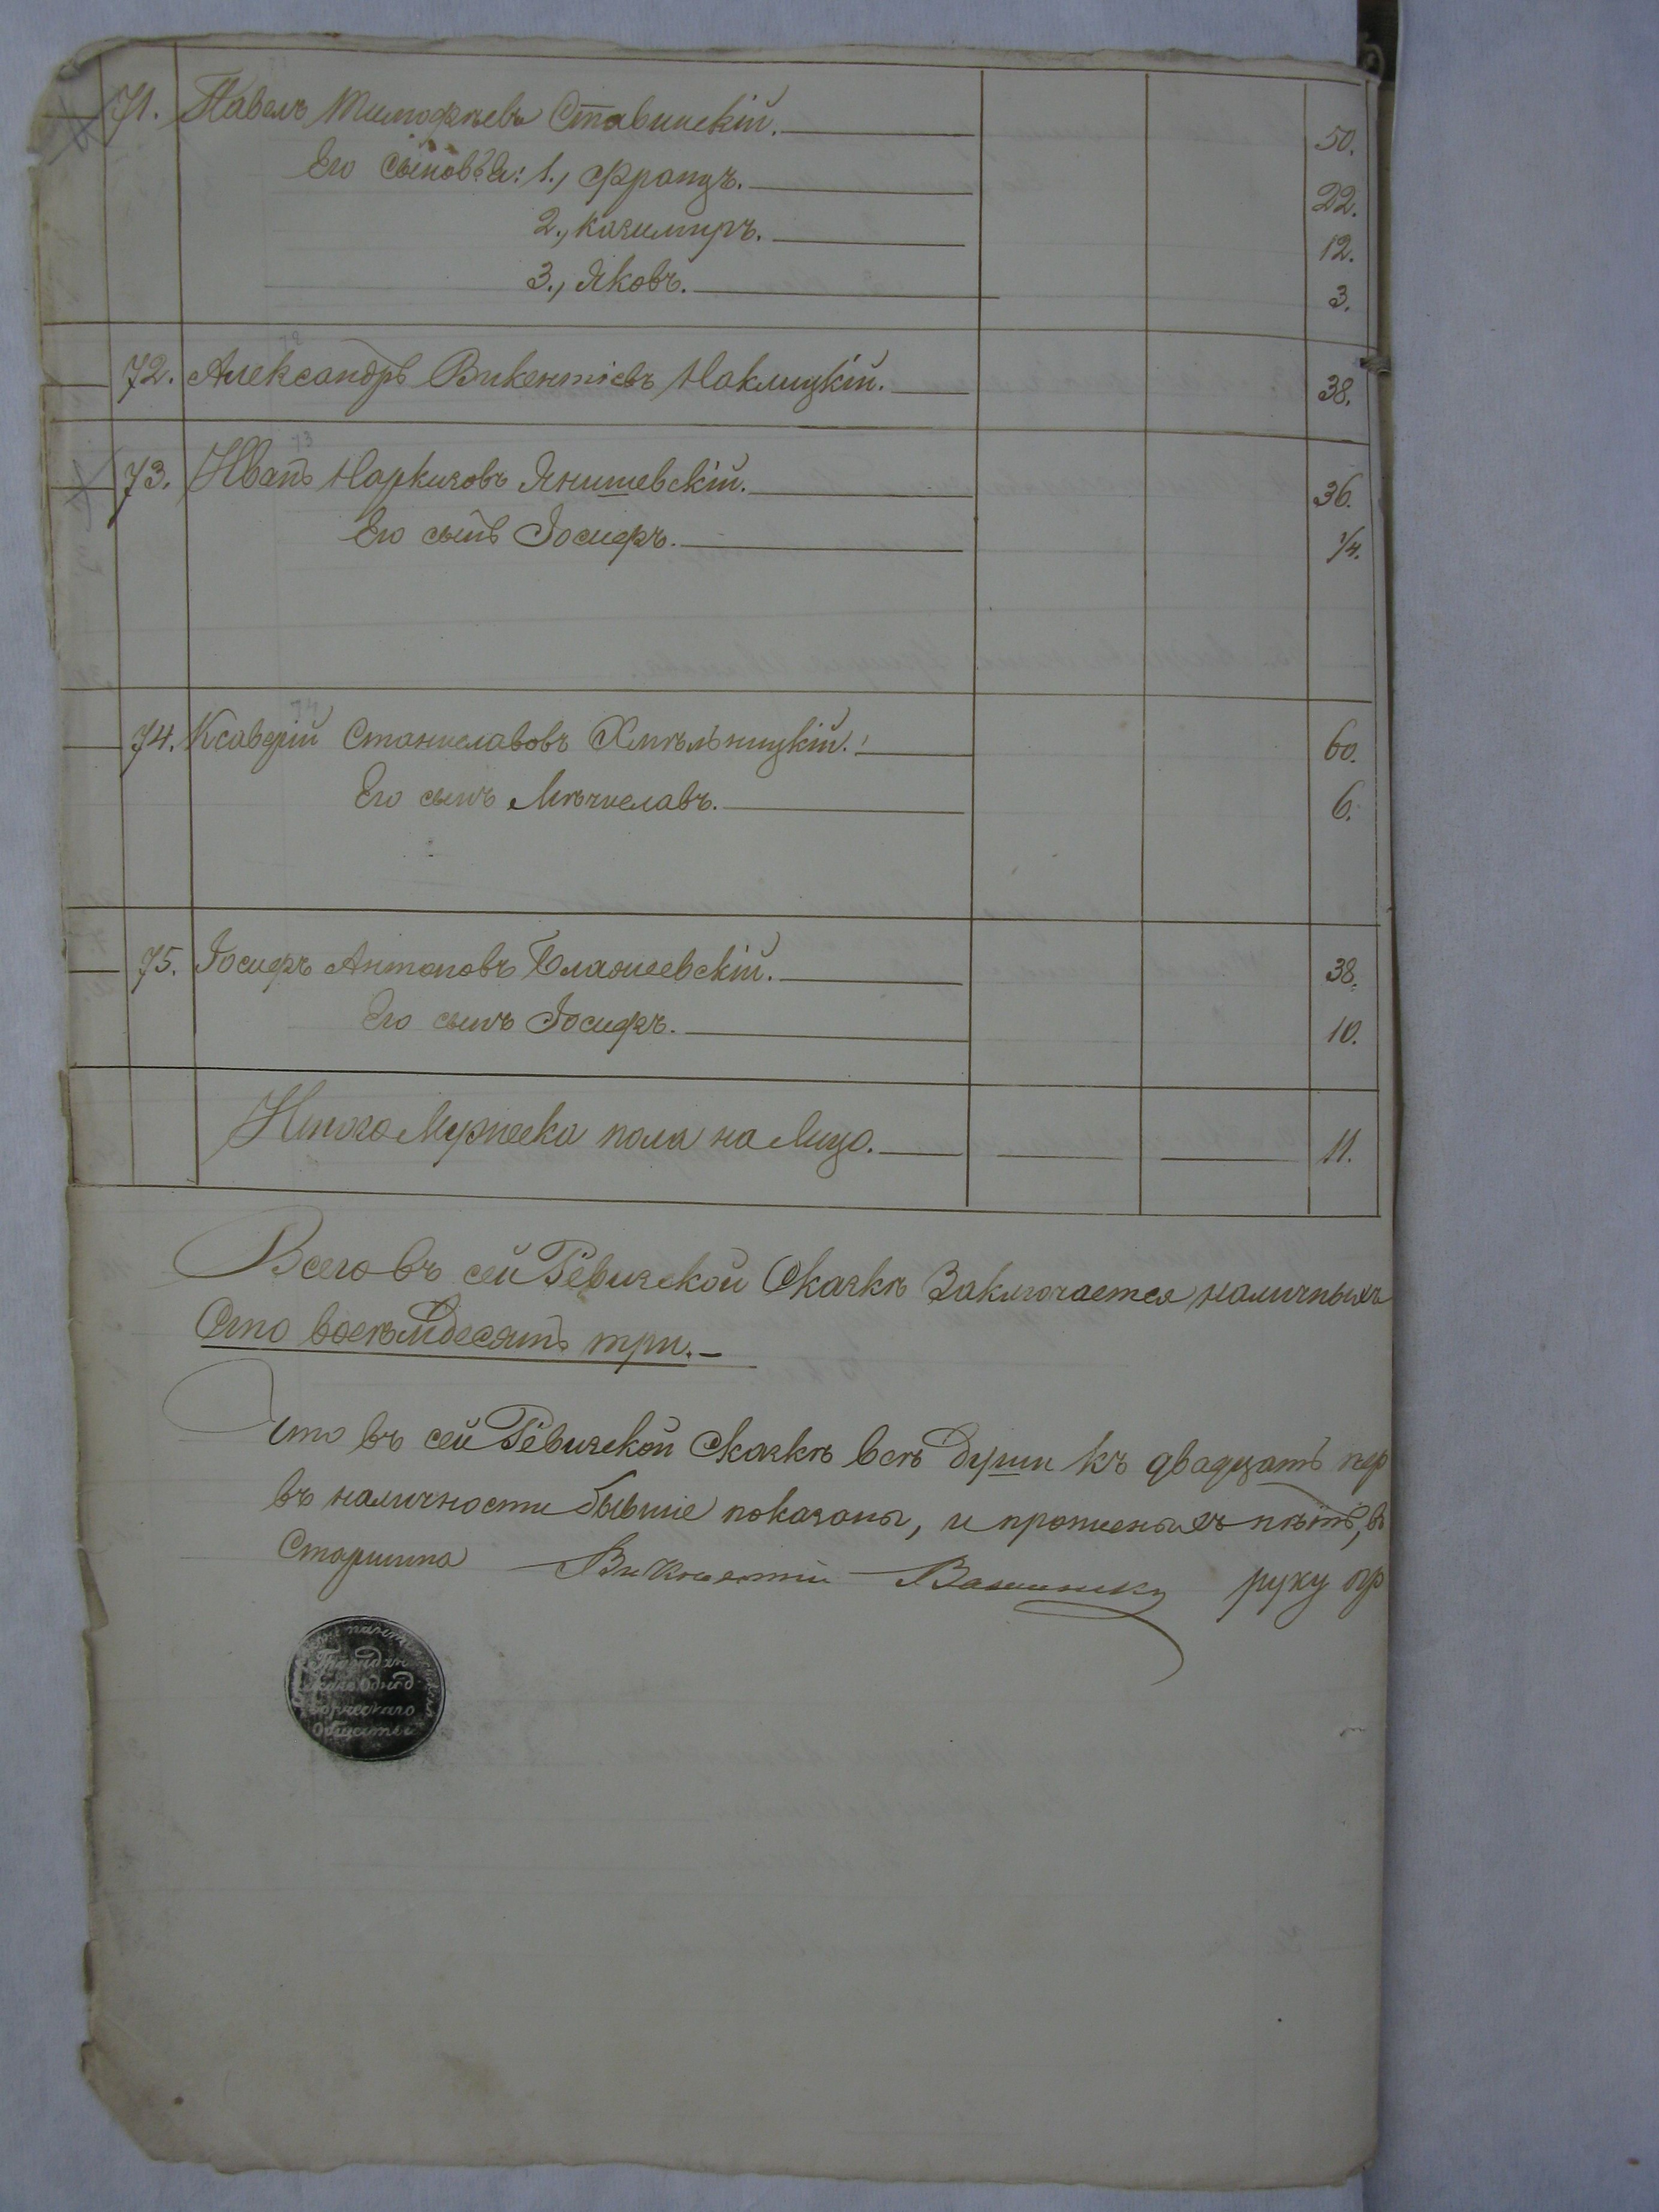 71. Павелъ Тимофѣевъ Ставинскій. 50.
Его сыновья: 1., Францъ. 22.
2., Казимиръ. 12.
3., Яковъ. 3.
72. Александръ Викентіевъ Наклицкій. 38.
73. Иванъ Наркизовъ Янишевскій. 36.
Его сынъ Іосифъ. 1/4.
74. Ксаверій Станиславовъ Хмѣльницкій. 60.
Его сынъ Мѣчиславъ. 6.
75. Іосифъ Антоновъ 38.
Его сынъ Іосифъ. 10.
Итого Мужеска пола на Лицо. 11.
Всего въ сей Ревизской Сказкѣ Заключается наличныхъ
Сто восемдесятъ три.
Что въ сей Ревизской Сказкѣ всѣ души къ двадцать пер
въ наличности бывшіе показаны, и нѣтъ, въ
Старшина руку пр
Граждан
скаго Однод
ворческаго
Общества